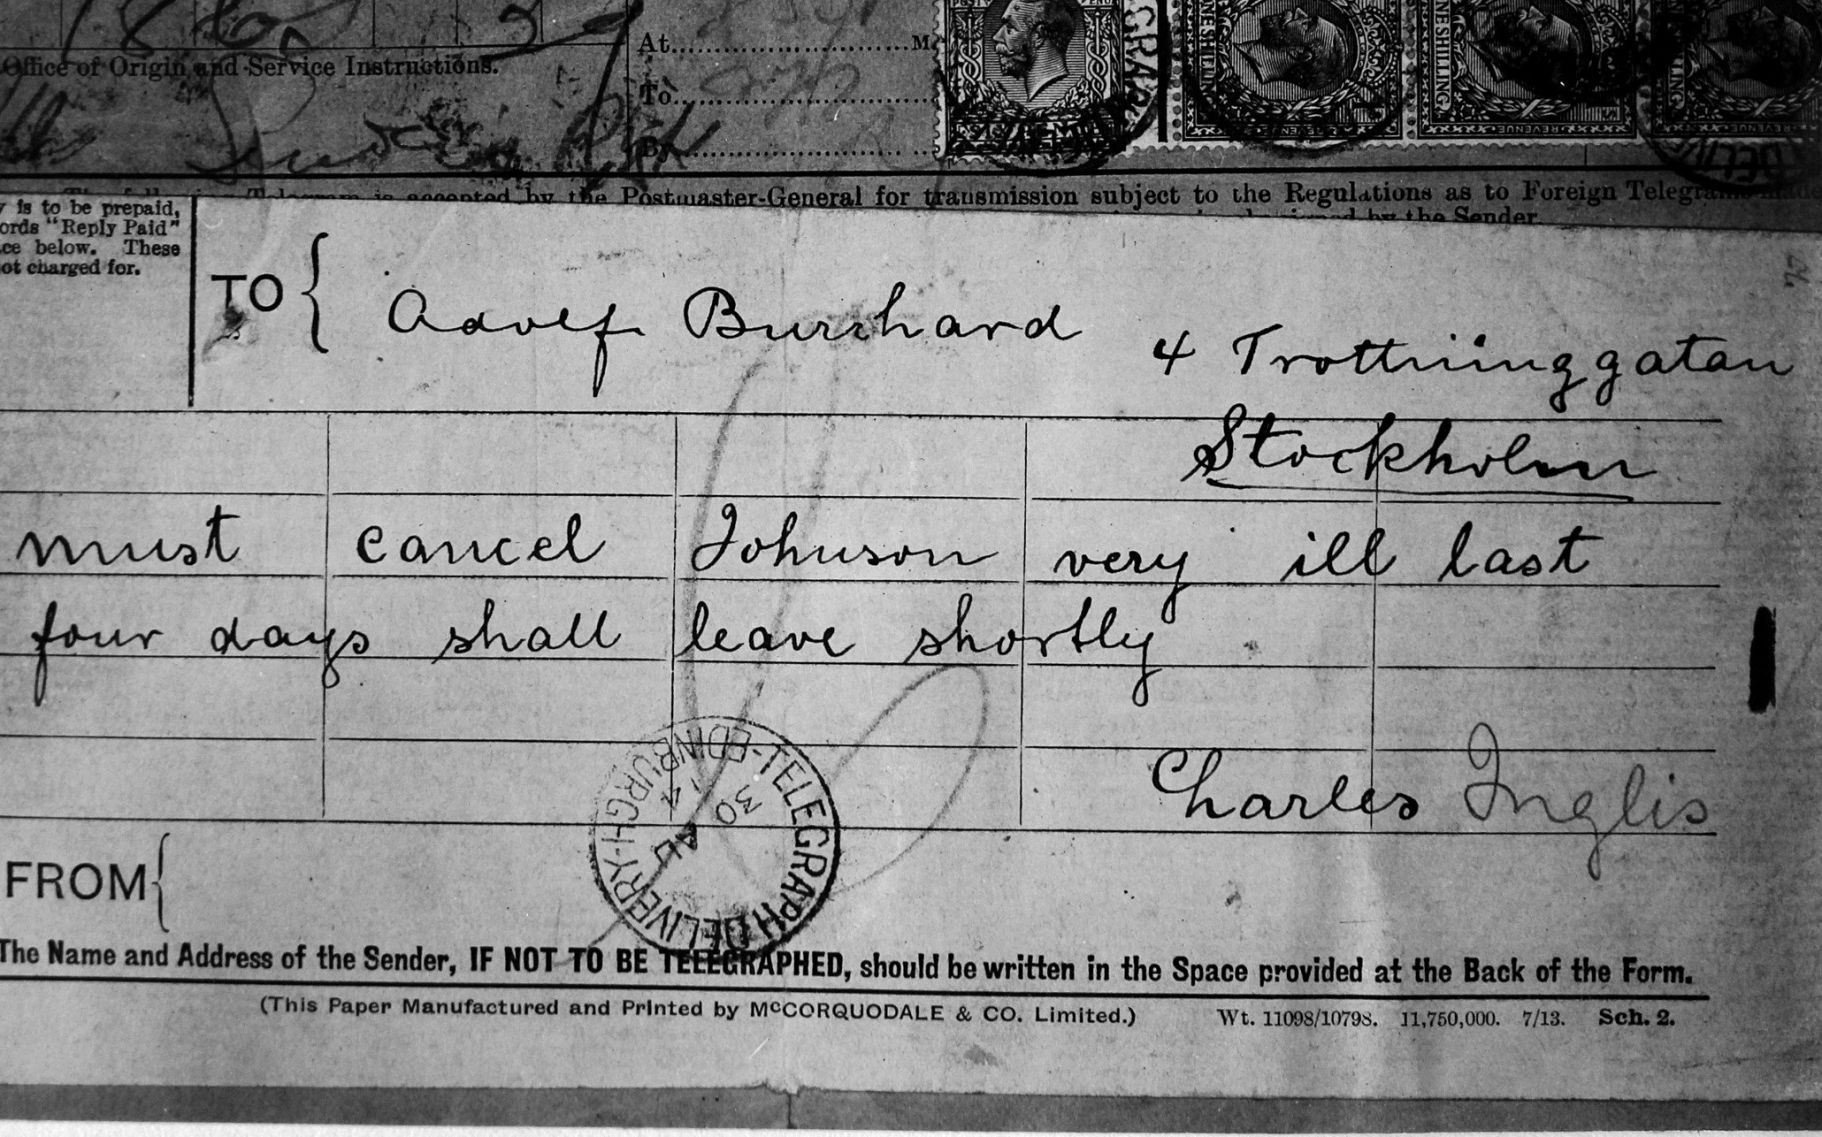 Office of Origin and Service Instructions.
At.................................M.
To.................................
By.................................
Telegram is accepted by the Postmaster-General for transmission subject to the Regulations as to Foreign Telegrams made
by the Sender.
is to be prepaid,
ords "Reply Paid"
ce below. These
ot charged for.
TO
Adolf Burchard
4 Trottninggatan
Stockholm
must cancel Johnson very ill last
four days shall leave shortly
Charles Inglis
TELEGRAPH DELIVERY-EDINBURGH
30 AU 14
FROM
The Name and Address of the Sender, IF NOT TO BE TELEGRAPHED, should be written in the Space provided at the Back of the Form.
(This Paper Manufactured and Printed by McCORQUODALE & CO. Limited.) Wt. 11098/10798. 11,750,000. 7/13. Sch. 2.